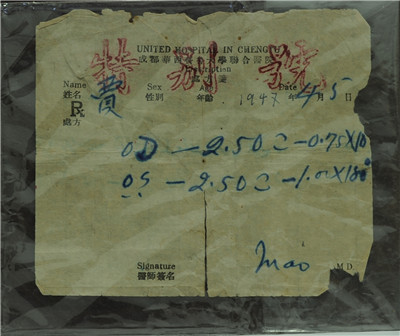 UNITED HOSPITAL IN CHENGTU
成都華西 大學聯合醫院
特別號
Name Sex Age Date
姓名 費 性別 年齡 1947 年 4 月 5 日
Rx
處方
OD - 2.50 - 0.75 X
OS - 2.50 - 1.00 X 180
Signature Mao M.D.
醫師簽名